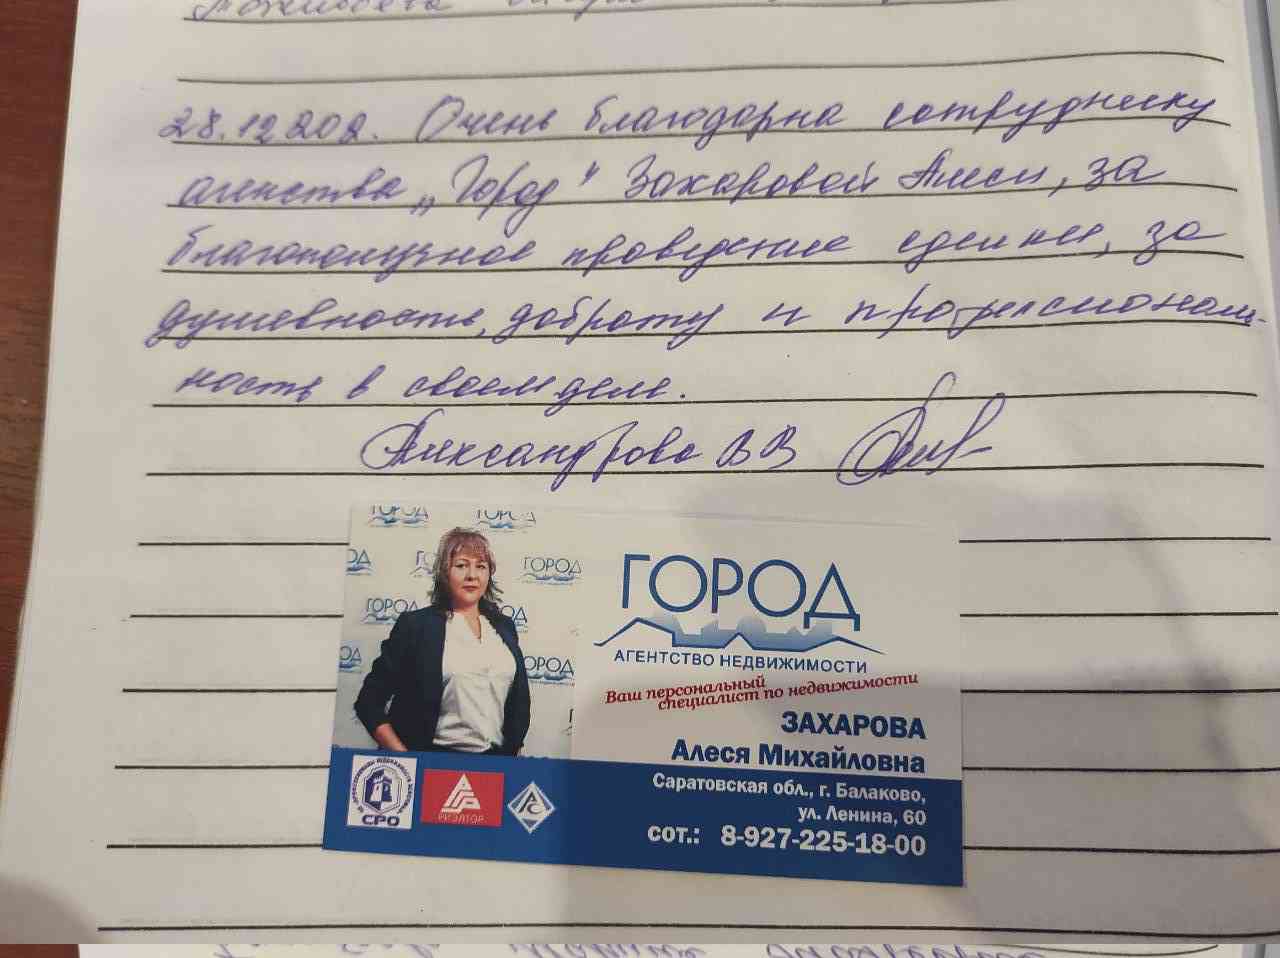 28.12.202. Очень благодарна сотруднику
агенства „Город" Захаровой Алеси, за
благополучное проведение сделки, за
душевность, доброту и профессиональ-
ность в своем деле.
Александрова ВВ
ГОРОД
АГЕНТСТВО НЕДВИЖИМОСТИ
Ваш персональный
специалист по недвижимости
ЗАХАРОВА
Алеся Михайловна
Саратовская обл., г. Балаково,
ул. Ленина, 60
сот.: 8-927-225-18-00
ГОРОД
ГОРОД
СРО
РИЭЛТОР